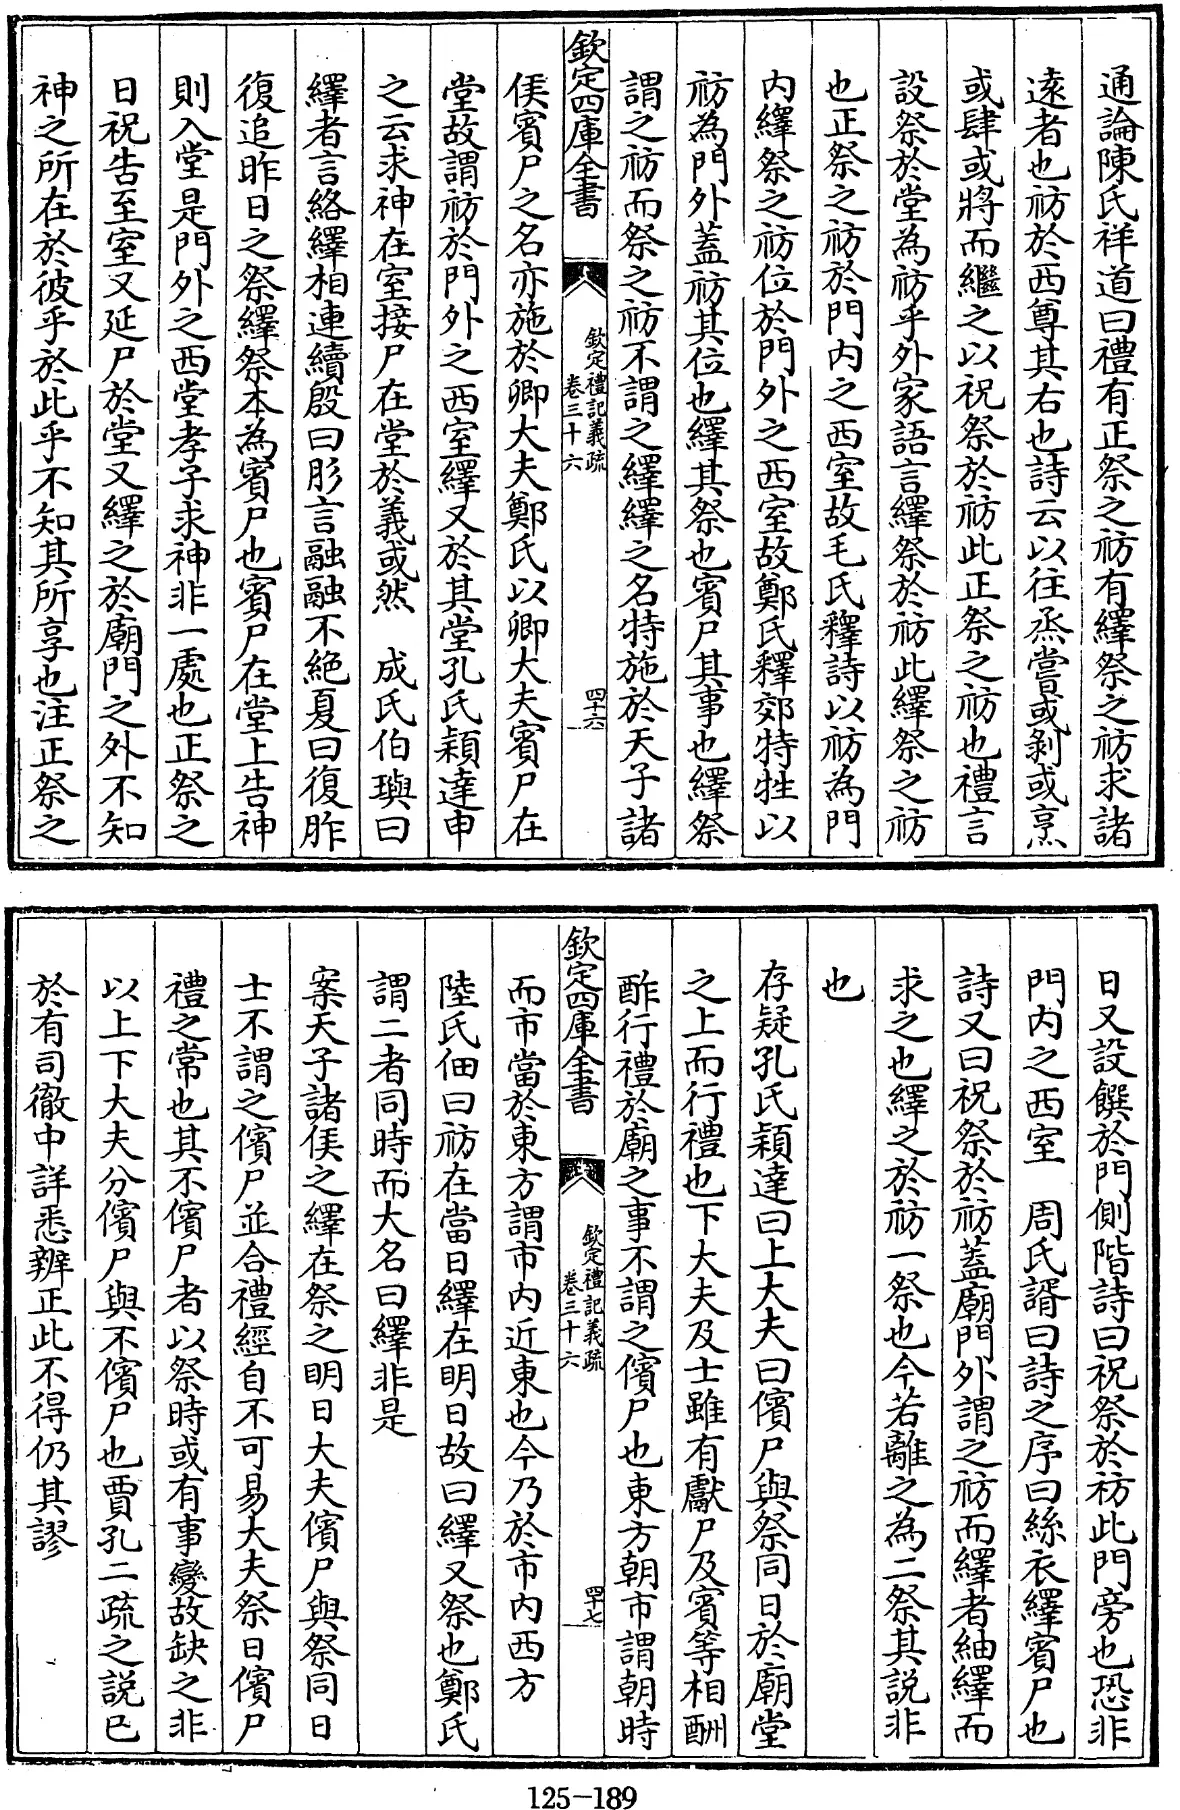 通論陳氏祥道曰禮有正祭之祊有繹祭之祊求諸
遠者也祊於西尊其右也詩云以往烝嘗或剥或烹
或肆或將而繼之以祝祭於祊此正祭之祊也禮言
設祭於堂為祊乎外家語言繹祭於祊此繹祭之祊
也正祭之祊於門内之西室故毛氏釋詩以祊為門
内繹祭之祊位於門外之西室故鄭氏釋郊特牲以
祊為門外蓋祊其位也繹其祭也賓尸其事也繹祭
謂之祊而祭之祊不謂之繹繹之名特施於天子諸
欽定四庫全書
欽定禮記義疏
卷三十六
四十六
侯賓尸之名亦施於卿大夫鄭氏以卿大夫賓尸在
堂故謂祊於門外之西室繹又於其堂孔氏穎達申
之云求神在室接尸在堂於義或然 成氏伯璵曰
繹者言絡繹相連續殷曰肜言融融不絶夏曰復胙
復追昨日之祭繹祭本為賓尸也賓尸在堂上告神
則入堂是門外之西堂孝子求神非一處也正祭之
日祝告至室又延尸於堂又繹之於廟門之外不知
神之所在於彼乎於此乎不知其所享也注正祭之
日又設饌於門側階詩曰祝祭於祊此門旁也恐非
門内之西室 周氏諝曰詩之序曰絲衣繹賓尸也
詩又曰祝祭於祊蓋廟門外謂之祊而繹者紬繹而
求之也繹之於祊一祭也今若離之為二祭其説非
也
存疑孔氏穎達曰上大夫曰儐尸與祭同日於廟堂
之上而行禮也下大夫及士雖有獻尸及賓等相酬
酢行禮於廟之事不謂之儐尸也東方朝市謂朝時
欽定四庫全書
欽定禮記義疏
卷三十六
四十七
而市當於東方謂市内近東也今乃於市内西方
陸氏佃曰祊在當日繹在明日故曰繹又祭也鄭氏
謂二者同時而大名曰繹非是
案天子諸侯之繹在祭之明日大夫儐尸與祭同日
士不謂之儐尸並合禮經自不可易大夫祭日儐尸
禮之常也其不儐尸者以祭時或有事變故缺之非
以上下大夫分儐尸與不儐尸也賈孔二疏之説已
於有司徹中詳悉辨正此不得仍其謬
125-189